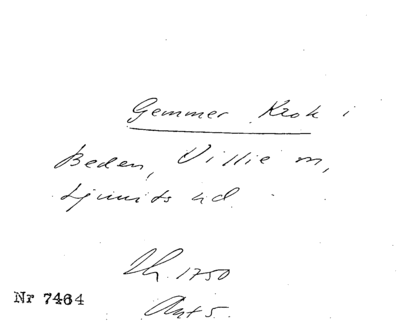 Gemmer Krok i
Beden, Villie sn,
Ljunits hd
Th. 1750
Ant 5.
Nr 7464